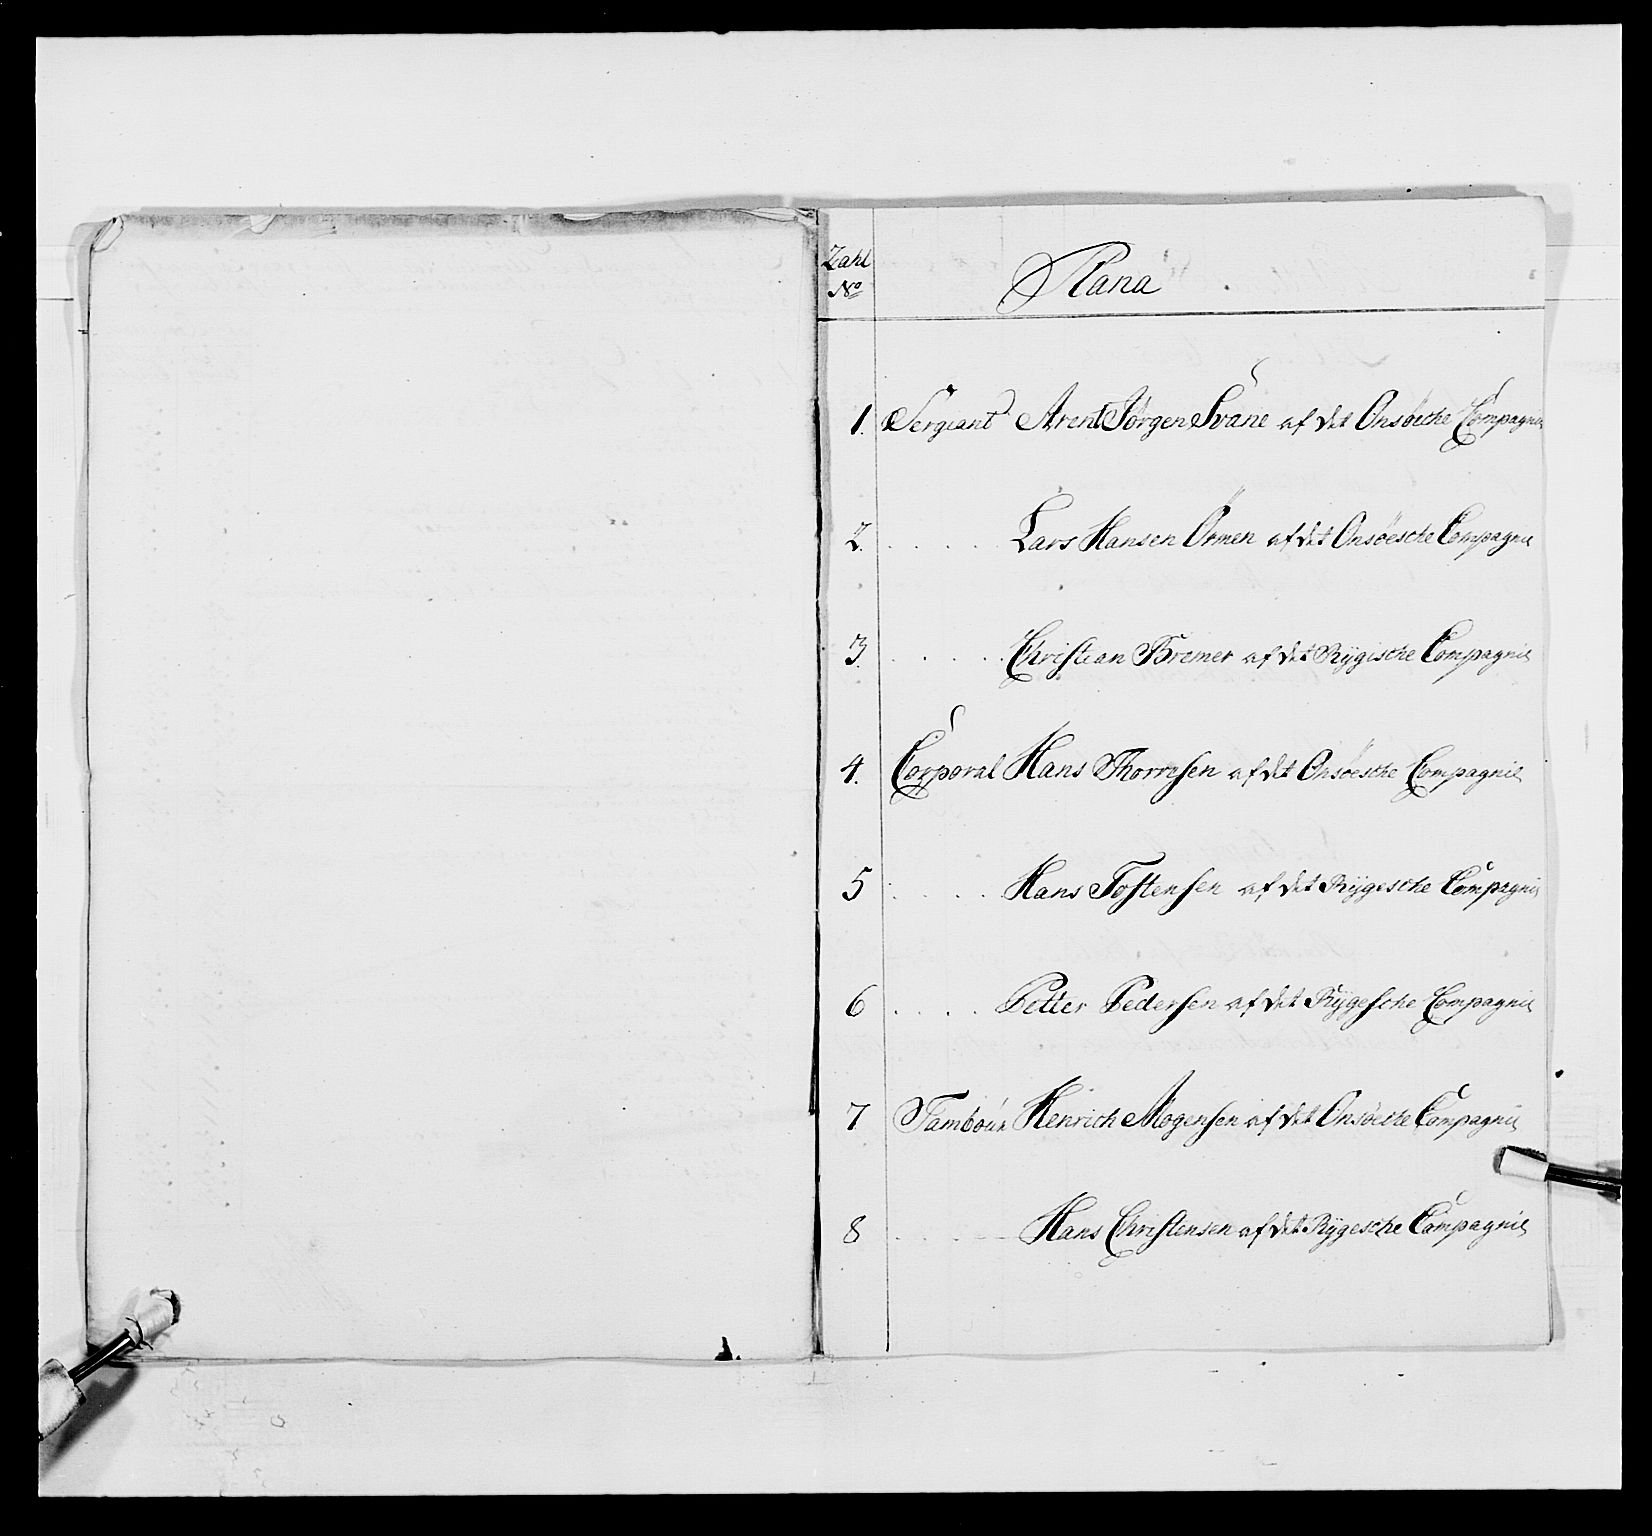 Zahl
No
Rana
1. Sergiant Arent Jørgen Svane af det Onsöesche Compagnie
2. Lars Hansen Örmen af det Onsöesche Compagnie
3. Christian Bremer af det Rygische Compagnie
4. Corporal Hans Thommesen af det Onsöesche Compagnie
5 Hans Tostensen af det Rygesche Compagnie
6 Petter Pedersen af det Rygesche Compagnie
7 Tambour Henrich Mogensen af det Onsöesche Compagnie
8 Hans Christensen af det Rygesche Compagnie